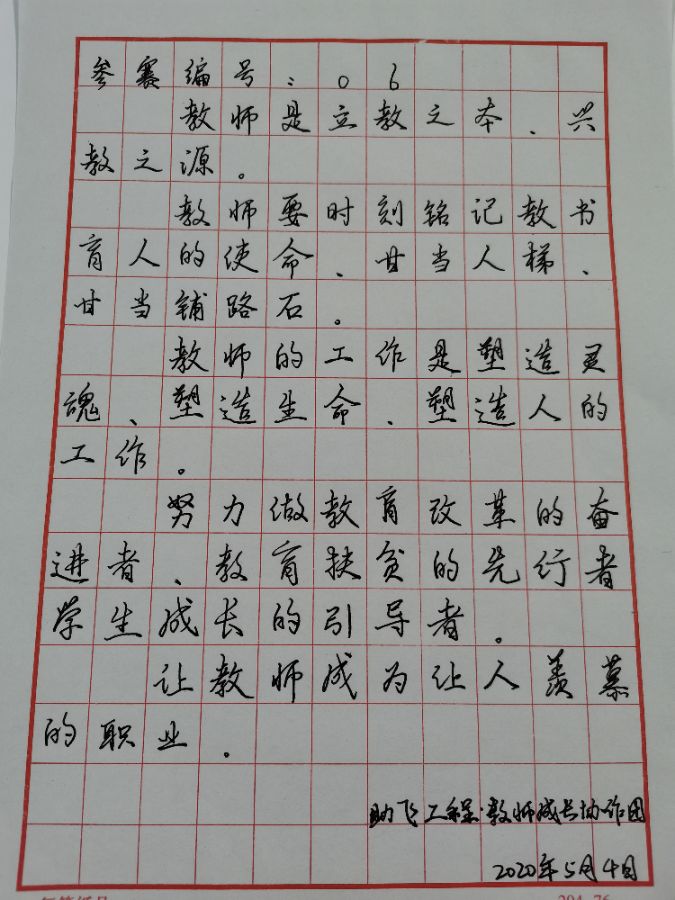 参赛编号：06
教师是立教之本、兴
教之源。
教师要时刻铭记教书
育人的使命、甘当人梯、
甘当铺路石。
教师的工作是塑造灵
魂、塑造生命、塑造人的
工作。
努力做教育改革的奋
进者、教育扶贫的先行者
学生成长的引导者。
让教师成为让人羡慕
的职业。
助飞工程·教师成长协作团
2020年5月4日